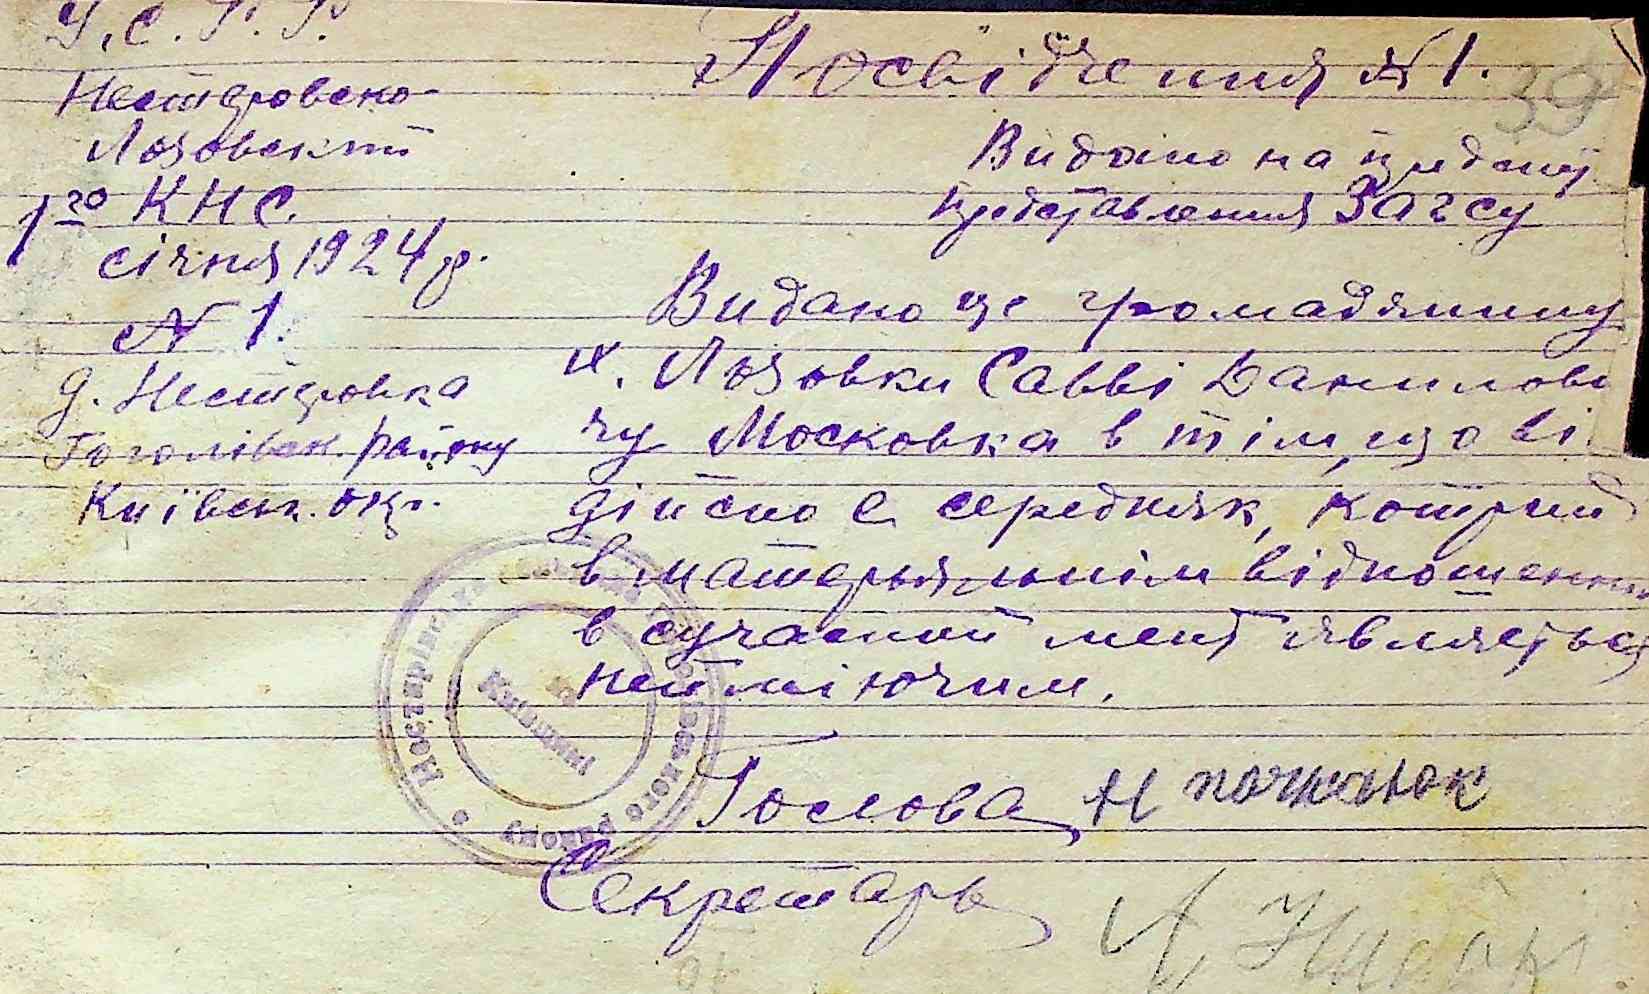 У.С.Р.Р.
Нестеровско-
Лозовский
КНС.
1го січня 1924 р.
№ 1.
д. Нестеровка
Гоголівск. району
Київськ. окр.
Посвідчення № 1.
39
Видано на
представления Загсу
Видано це громадянину
х. Лозовки Савві Данилови
чу Московка в тім, що ві
дійсно є середняк, котрий
в матерьяльнім відношенни
в сучасний мент являеться
нейміючим.
Гослова Н
Секретарь
Київщині
району